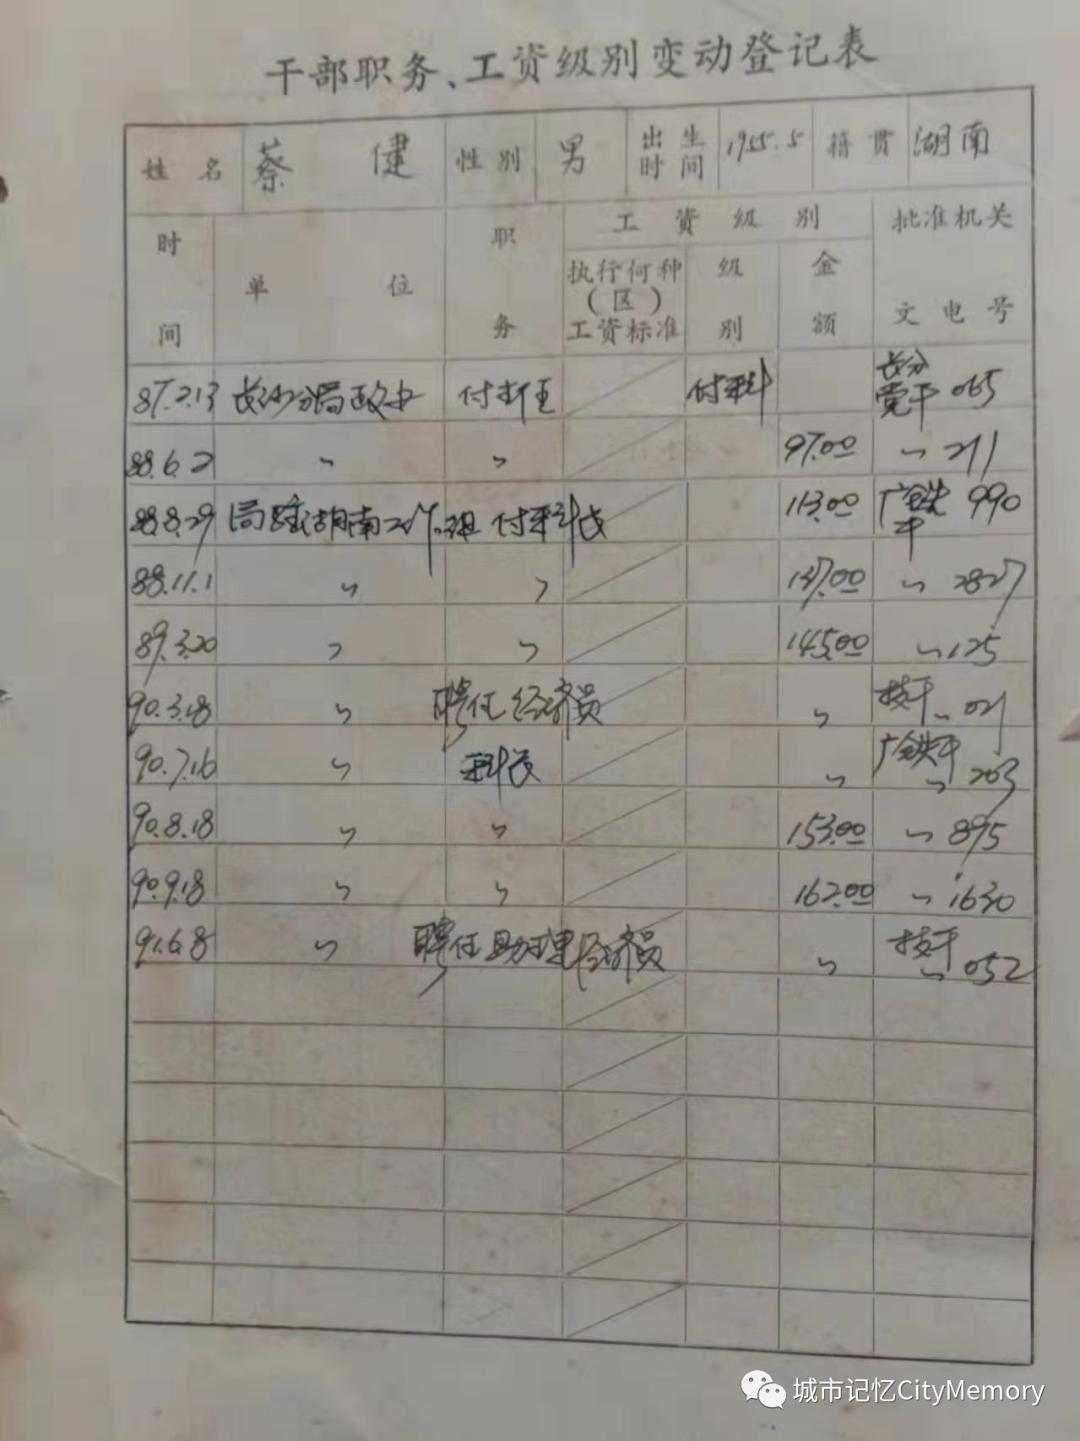 干部职务、工资级别变动登记表
姓名 蔡健 性别 男 出生时间 1955.5 籍贯 湖南
时间 单位 职务 工资级别 批准机关文电号
执行何种(区)工资标准 级别 金额
87.2.13 长沙分局政办 付主任 付科 长分党干 065
88.6.2 〃 〃 97.00 〃 211
88.8.29 局驻湖南工作组 付科长 113.00 广铁干 990
88.11.1 〃 〃 137.00 〃 2827
89.3.20 〃 〃 145.00 〃 125
90.3.18 〃 聘任经济员 〃 技干 〃 021
90.7.16 〃 科长 〃 广铁干 〃 203
90.8.18 〃 〃 153.00 〃 895
90.9.18 〃 〃 162.00 〃 1630
91.6.8 〃 聘任助理经济员 〃 技干 〃 052
城市记忆CityMemory